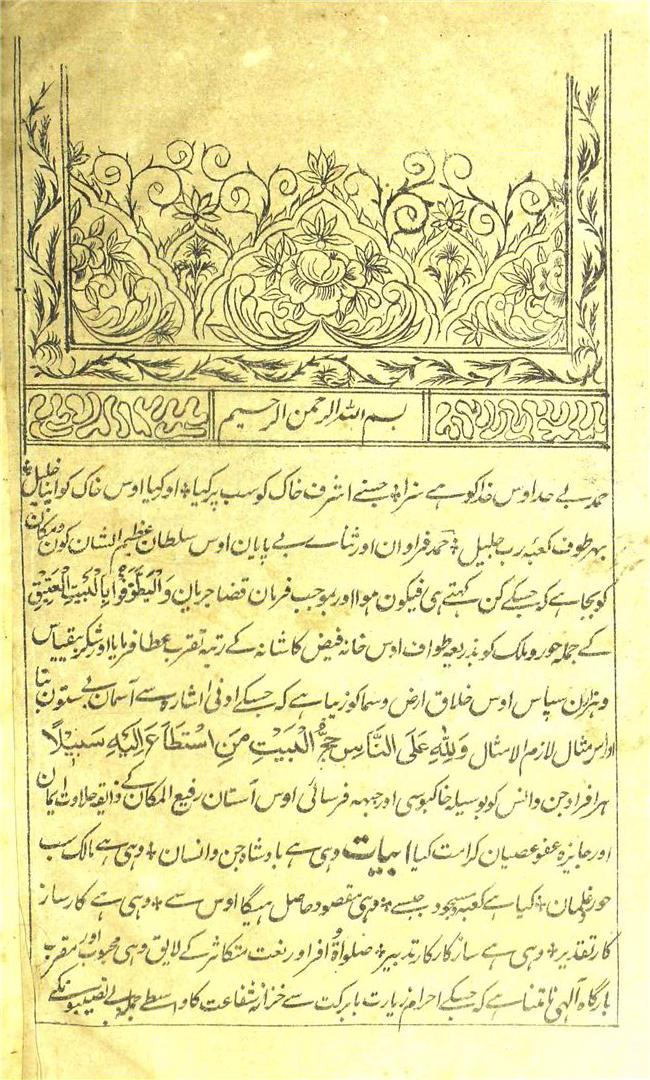 بسم اللہ الرحمن الرحیم
حمد بے حد اوس خدا کو ہے سزا * جسنے اشرف خاک کو سب پر کیا * او کیا اوس خاک کو اپنا خلیل *
بہر طوف کعبۂ رب جلیل * حمد فراوان اور ثنائے بے پایان اوس سلطان عظیم الشان کون و مکان
کو بجا ہے کہ جسکے کن کہتے ہی فیکون ہوا اور بموجب فرمان قضا جریان وَلْيَطَّوَّفُوا بِالْبَيْتِ الْعَتِيْقِ
کے جملہ حور و ملک کو بذریعہ طواف اوس خانہ فیض کاشانہ کے رتبہ تقرب عطا فرمایا اور شکر بیقیاس
و ہزاران سپاس اوس خلاق ارض و سما کو زیبا ہے کہ جسکے ادنی اشارہ سے آسمان بے ستون بنا
اور اس مثال لازم الامتثال وَلِلّٰهِ عَلَى النَّاسِ حِجُّ الْبَيْتِ مَنِ اسْتَطَاعَ اِلَيْهِ سَبِيْلًا
ہر افراد جن و انس کو بوسیلہ خاکبوسی اور جبہہ فرسائی اوس آستان رفیع المکان کے ذایقہ حلاوت ایمان
اور جایزہ عفو عصیان کرامت کیا ابیات وہی ہے بادشاہ جن و انسان * وہی ہے مالک سب
حور و غلمان * کیا ہے کعبہ مسجود جسے * وہی مقصود حاصل ہیگا اوس سے * وہی ہے کارساز
کار تقدیر * وہی ہے سازگار کار تدبیر * صلوٰۃ وافر اور نعت متکاثر کے لایق وہی محبوب اور مقرب
بارگاہ آلہی ہے کہ جسکے احرام زیارت بابرکت سے خزانہ شفاعت کا واسطے جملہ بے نصیبونکے